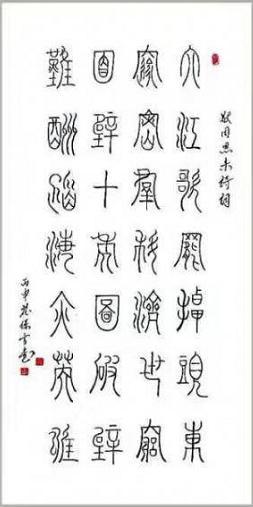 周恩来诗词
大江歌罷掉頭東
邃密羣科濟世窮
面壁十年圖破壁
難酬蹈海亦英雄
丙申